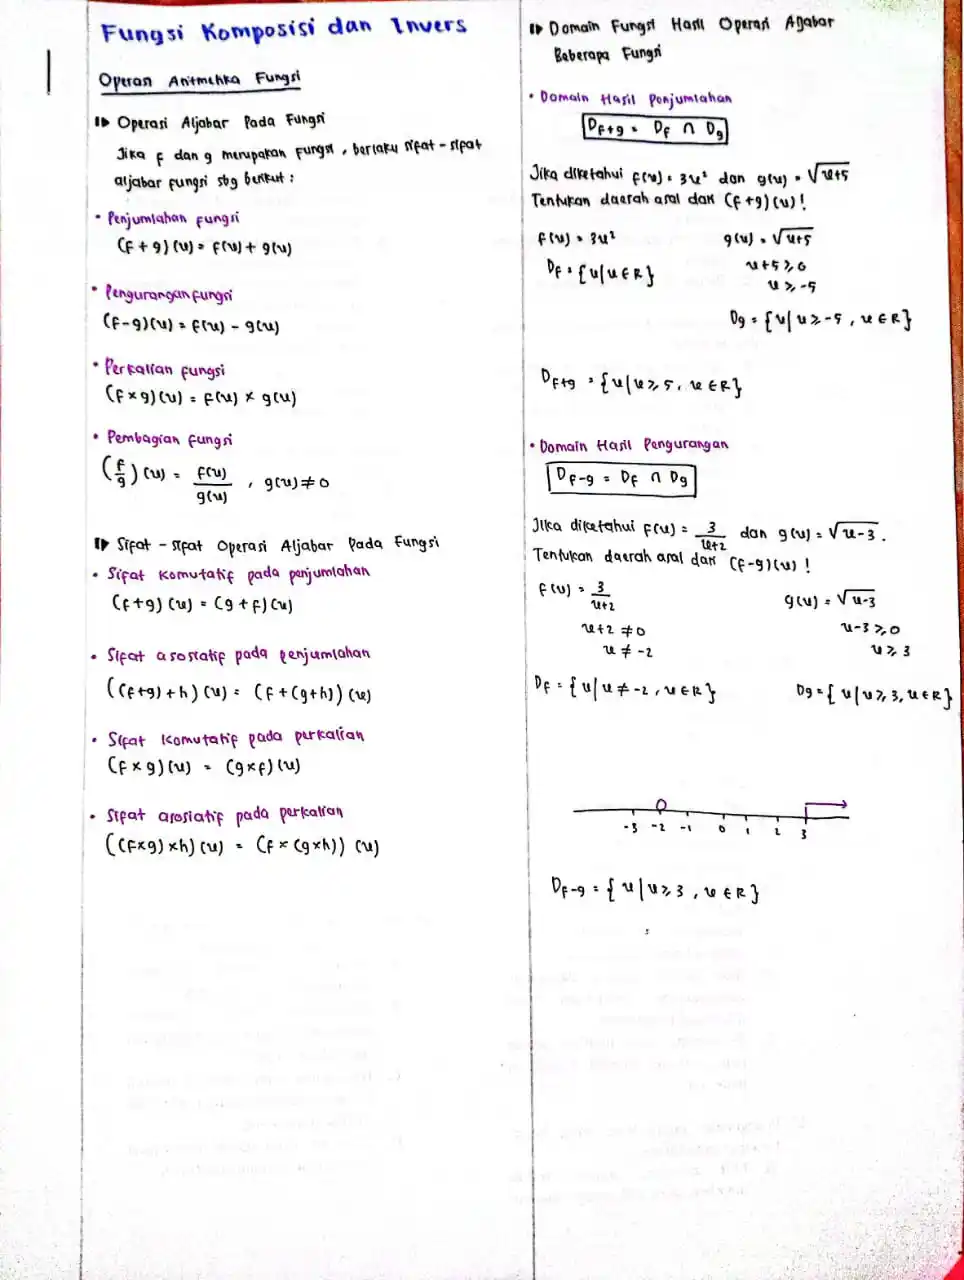 Fungsi Komposisi dan Invers
Operasi Aritmetika Fungsi
Operasi Aljabar Pada Fungsi
Jika f dan g merupakan fungsi, berlaku sifat-sifat
aljabar fungsi sbg berikut :
• Penjumlahan fungsi
(f + g)(x) = f(x) + g(x)
• Pengurangan fungsi
(f-g)(x) = f(x) - g(x)
• Perkalian fungsi
(f × g)(x) = f(x) × g(x)
• Pembagian fungsi
(f/g)(x) = f(x)/g(x) , g(x) ≠ 0
Sifat - sifat Operasi Aljabar Pada Fungsi
• Sifat komutatif pada penjumlahan
(f+g)(x) = (g+f)(x)
• Sifat asosiatif pada penjumlahan
((f+g)+h)(x) = (f+(g+h))(x)
• Sifat komutatif pada perkalian
(f×g)(x) = (g×f)(x)
• Sifat asosiatif pada perkalian
((f×g)×h)(x) = (f×(g×h))(x)
Domain Fungsi Hasil Operasi Aljabar
Beberapa Fungsi
• Domain Hasil Penjumlahan
Df+g = Df ∩ Dg
Jika diketahui f(x) = 3x² dan g(x) = √x+5
Tentukan daerah asal dari (f+g)(x) !
f(x) = 3x² g(x) = √x+5
Df = {x|x∈R} x+5 ≥ 0
x ≥ -5
Dg = {x|x ≥ -5, x∈R}
Df+g = {x|x ≥ 5, x∈R}
• Domain Hasil Pengurangan
Df-g = Df ∩ Dg
Jika diketahui f(x) = 3/x+2 dan g(x) = √x-3.
Tentukan daerah asal dari (f-g)(x) !
f(x) = 3/x+2 g(x) = √x-3
x+2 ≠ 0 x-3 ≥ 0
x ≠ -2 x ≥ 3
Df = {x|x ≠ -2, x∈R} Dg = {x|x ≥ 3, x∈R}
-3 -2 -1 0 1 2 3
Df-g = {x|x ≥ 3, x∈R}